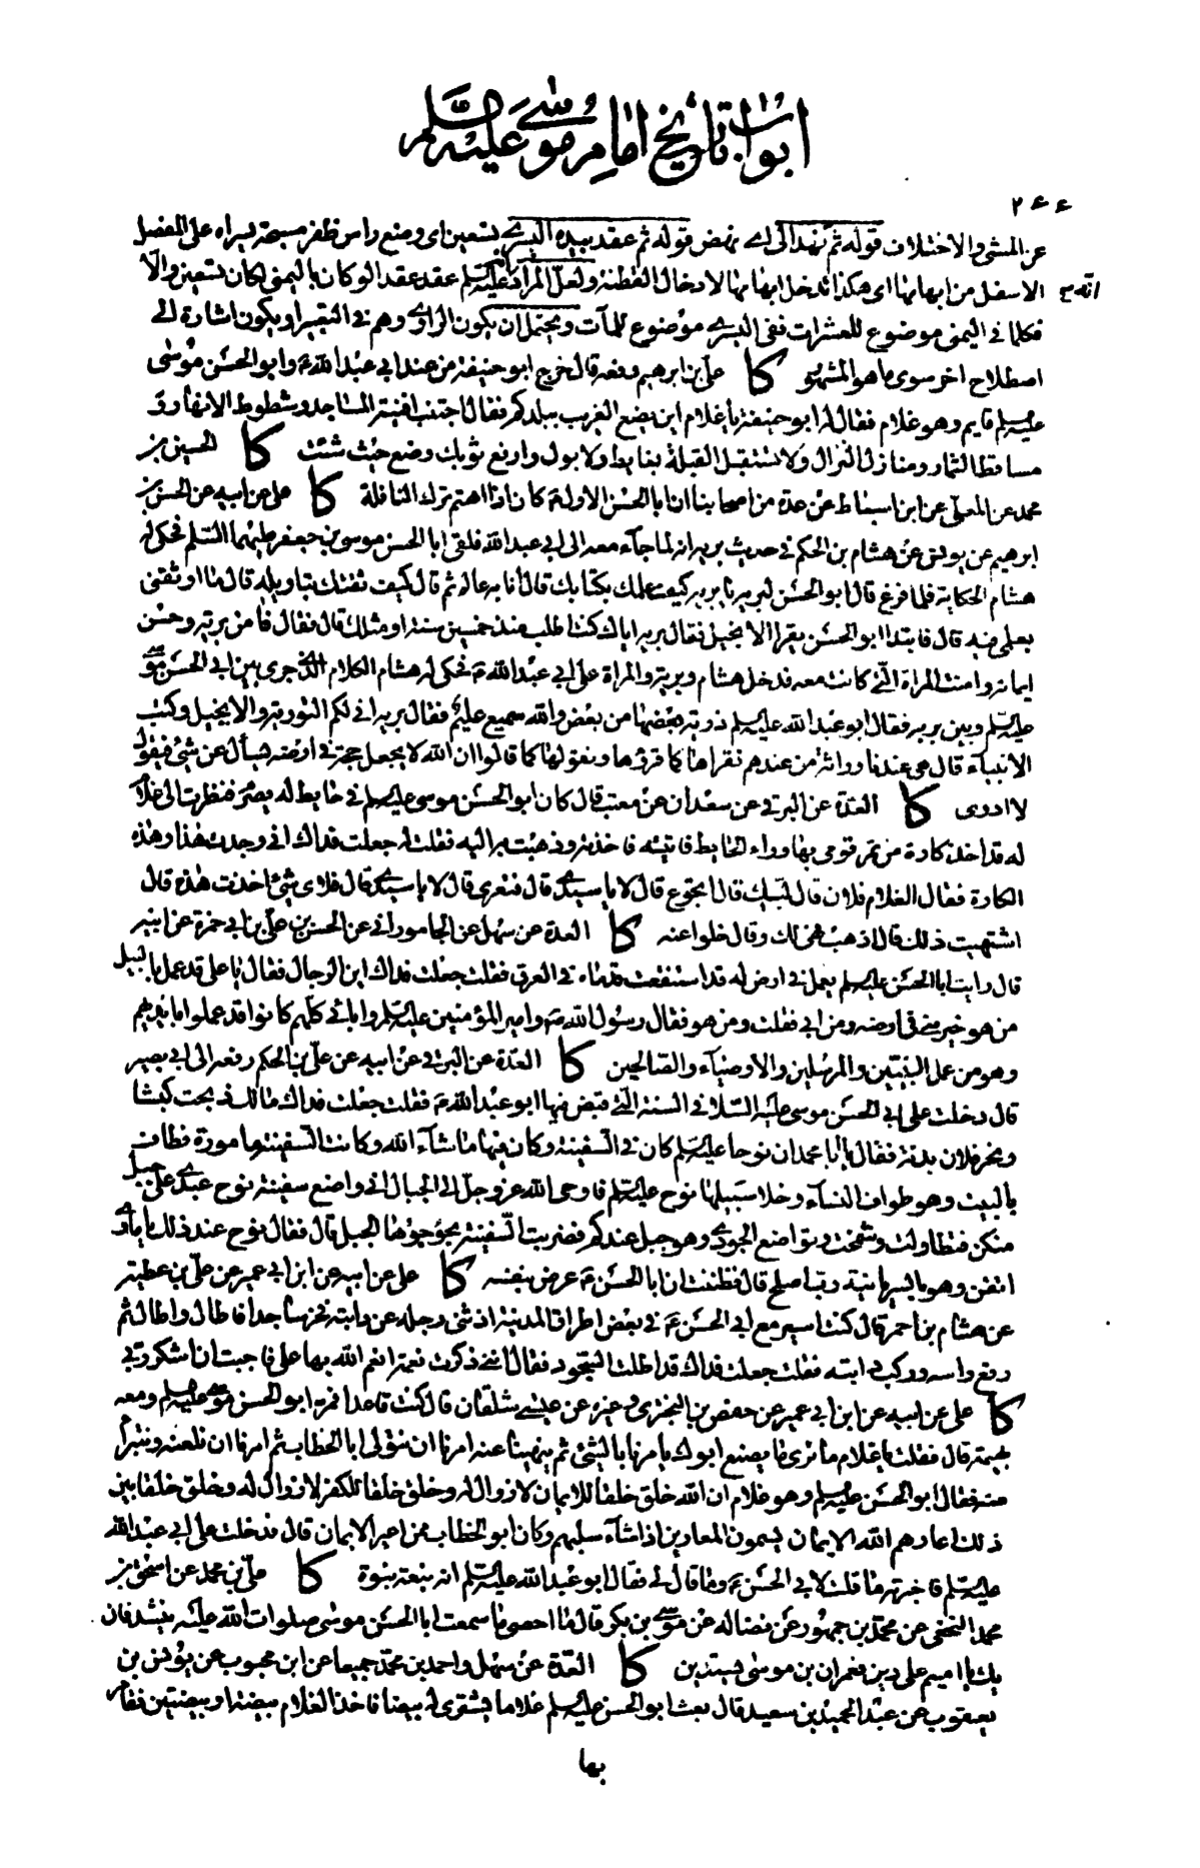 ابواب تاريخ امام موسى عليه السلم
٢٤٤
عن المشى والاختلاف قوله ثم نهد الى اى نهض قوله ثم عقد بيده اليسرى تسعين اى وضع راس ظفر مسبحة يسراه على المفصل
الاسفل من ابهامها اى هكذا تدخل ابهامها لادخال القطنة ولعل المراد انه عليه السلم عقد عقدا لو كان باليمنى لكان تسعين والا
فكلما فى اليمنى موضوع للعشرات ففى اليسرى موضوع للمآت ويحتمل ان يكون الراوى وهم فى التعبير او يكون اشارة الى
اصطلاح اخر سوى ما هو المشهور كا على بن ابرهيم رفعه قال خرج ابو حنيفة من عند ابى عبد الله ع وابو الحسن موسى
عليه السلم قايم وهو غلام فقال له ابو حنيفة يا غلام اين يضع الغريب ببلدكم فقال اجتنب افنية المساجد وشطوط الانهار و
مساقط الثمار ومنازل النزال ولا تستقبل القبلة بغايط ولا بول وارفع ثوبك وضع حيث شئت كا الحسين بن
محمد عن المعلى عن ابن اسباط عن عدة من اصحابنا ان ابا الحسن الاول ع كان اذا اهتم ترك النافلة كا على عن ابيه عن الحسن بن
ابرهيم عن يونس عن هشام بن الحكم فى حديث بريه انه لما جآء معه الى ابى عبد الله فلقى ابا الحسن موسى بن جعفر عليهما السلم فحكى له
هشام الحكاية فلما فرغ قال ابو الحسن لبريه يا بريه كيف علمك بكتابك قال انا به عالم ثم قال كيف ثقتك بتاويله قال ما اوثقنى
بعلمى فيه قال فابتدا ابو الحسن يقرا الانجيل فقال بريه اياك كنت اطلب منذ خمسين سنة او مثلك قال فقال فامن بريه وحسن
ايمانه وامنت المراة التى كانت معه فدخل هشام وبريه والمراة على ابى عبد الله ع فحكى له هشام الكلام الذى جرى بين ابى الحسن موسى
عليه السلم وبين بريه فقال ابو عبد الله عليه السلم ذرية بعضها من بعض والله سميع عليم فقال بريه انى لكم التورية والانجيل وكتب
الانبيآء قال هى عندنا وراثة من عندهم نقراها كما قرؤها ونقولها كما قالوا ان الله لا يجعل حجة فى ارضه يسأل عن شئ فيقول
لا ادرى كا العدة عن البرقى عن سعدان عن معتب قال كان ابو الحسن موسى عليه السلم فى حايط له يصرم فنظرت الى غلام
له قد اخذ كارة من تمر فرمى بها وراء الحايط فاتيته فاخذته وذهبت به اليه فقلت له جعلت فداك انى وجدت هذا وهذه
الكارة فقال الغلام فلان قال لبيك قال اتجوع قال لا يا سيدى قال فتعرى قال لا يا سيدى قال فلاى شئ اخذت هذه قال
اشتهيت ذلك قال اذهب فهى لك وقال خلوا عنه كا العدة عن سهل عن الجامورانى عن الحسن بن على بن ابى حمزة عن ابيه
قال رايت ابا الحسن عليه السلم يعمل فى ارض له قد استنقعت قدماه فى العرق فقلت جعلت فداك اين الرجال فقال يا على قد عمل باليد
من هو خير منى فى ارضه ومن ابى فقلت ومن هو فقال رسول الله ص وامير المؤمنين عليه السلم وابائى كلهم كانوا قد عملوا بايديهم
وهو من عمل النبيين والمرسلين والاوصيآء والصالحين كا العدة عن البرقى عن ابيه عن على بن الحكم رفعه الى ابى بصير
قال دخلت على ابى الحسن موسى عليه السلم فى السنة التى قبض فيها ابو عبد الله ع فقلت جعلت فداك مالك ذبحت كبشا
ونحر فلان بدنة فقال يا ابا محمد ان نوحا عليه السلم كان فى السفينة وكان فيها ما شآء الله وكانت السفينة مامورة فطافت
بالبيت وهو طواف النسآء وخلا سبيلها نوح عليه السلم فاوحى الله عز وجل الى الجبال انى واضع سفينة نوح عبدى على جبل
منكن فتطاولت وشمخت وتواضع الجودى وهو جبل عندكم فضربت السفينة بجؤجؤها الجبل قال فقال نوح عند ذلك يا ماوى
اتقن وهو بالسريانية رب اصلح قال فظننت ان ابا الحسن ع عرض بنفسه كا على عن ابيه عن ابن ابى عمير عن على بن عطية
عن هشام بن احمر قال كنت اسير مع ابى الحسن ع فى بعض اطراف المدينة اذ ثنى رجله عن دابته فخر ساجدا فاطال واطال ثم
رفع راسه وركب دابته فقلت جعلت فداك قد اطلت السجود فقال اننى ذكرت نعمة انعم الله بها على فاحببت ان اشكر ربى
كا على عن ابيه عن ابن ابى عمير عن حفص بن البخترى وغيره عن عيسى شلقان قال كنت قاعدا فمر ابو الحسن موسى عليه السلم ومعه
بهيمة قال فقلت يا غلام ما ترى ما يصنع ابوك يامرنا بالشئ ثم ينهينا عنه امرنا ان نتولى ابا الخطاب ثم امرنا ان نلعنه ونتبرأ
منه فقال ابو الحسن عليه السلم وهو غلام ان الله خلق خلقا للايمان لا زوال له وخلق خلقا للكفر لا زوال له وخلق خلقا بين
ذلك اعارهم الله الايمان يسمون المعارين اذا شآء سلبهم وكان ابو الخطاب ممن اعير الايمان قال فدخلت على ابى عبد الله
عليه السلم فاخبرته ما قلت لابى الحسن ع وما قال لى فقال ابو عبد الله عليه السلم انه نبعة نبوة كا على بن محمد عن اسحق بن
محمد النخعى عن محمد بن جمهور عن فضالة عن موسى بن بكر قال ما احصى ما سمعت ابا الحسن موسى صلوات الله عليه ينشد فان
يك يا اميم على دين فعمران بن موسى يستدين كا العدة عن سهل واحمد بن محمد جميعا عن ابن محبوب عن يونس بن
يعقوب عن عبد الحميد بن سعيد قال بعث ابو الحسن عليه السلم غلاما يشترى له بيضا فاخذ الغلام بيضة او بيضتين فقامر
بها